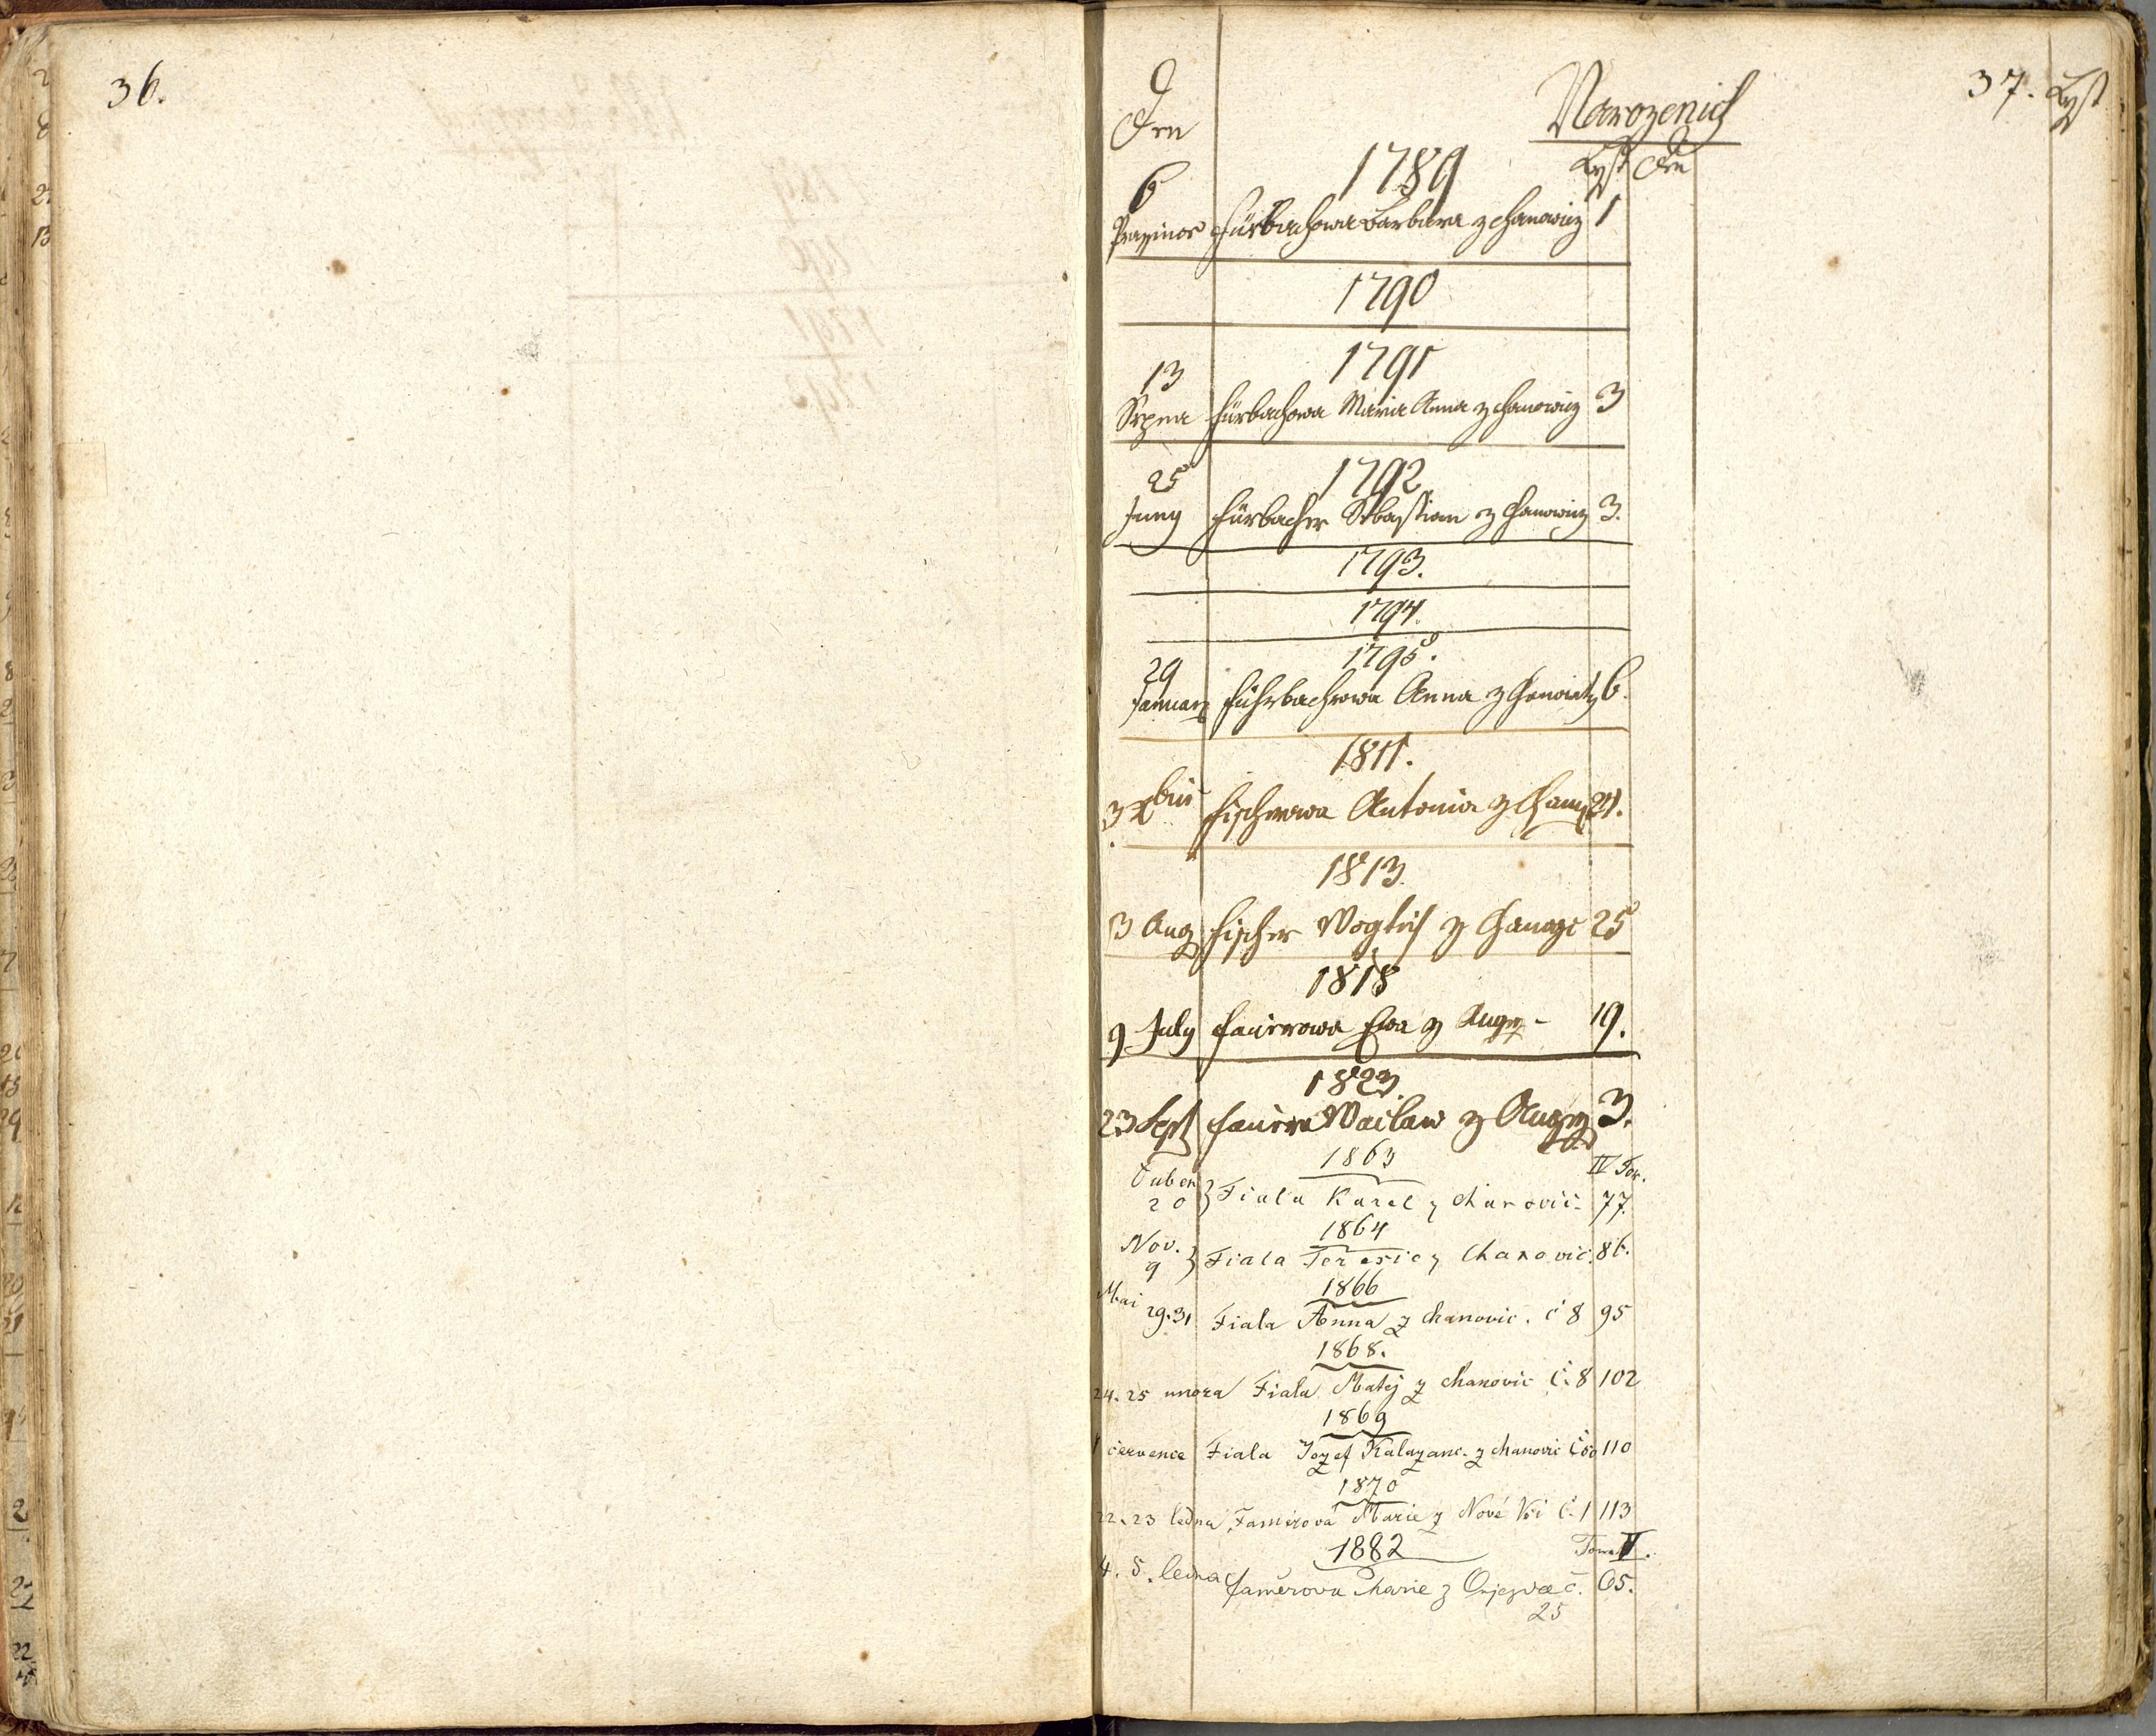 36.
37. Lyst
Den
Narozenich
Lyst Den
1789
6 Prazinos Fürbachowa Barbara z Chanowicz 1
1790
1791
13 Srpna Fürbachowa Maria Anna z Chanowicz 3
1792
25 Juny Fürbacher Sebastian z Chanowicz 3.
1793.
1794.
1795.
29 Januarz Führbachrowa Anna z Chanowicz 6.
1811.
3 Xbris Fischrowa Antonia z Chan 21.
1813.
3 Aug Fischer Wogtěch z Chanowic 25
1818
9 July Faurowa Ewa z Augez - 19.
1823.
23 Sept Waclaw z Augezd 3.
1863
IV Tom.
Duben 20 } Fiala Karel z Chanovic. 77.
1864
Nov. 9 } Fiala Teresie z Chanovic. 86.
1866
Mai 29.31 Fiala Anna z Chanovic. č 8 95
1868.
24. 25 unora Fiala Matěj z Chanovic č. 8 102
1869
1 července Fiala Jozef Kalazanc. z Chanovic č 50 110
1870
22. 23 ledna Faměrová Marie z Nové Vsi č. 1 113
1882
Tom V.
4. 5. ledna Faměrova Marie z č. 65.
25